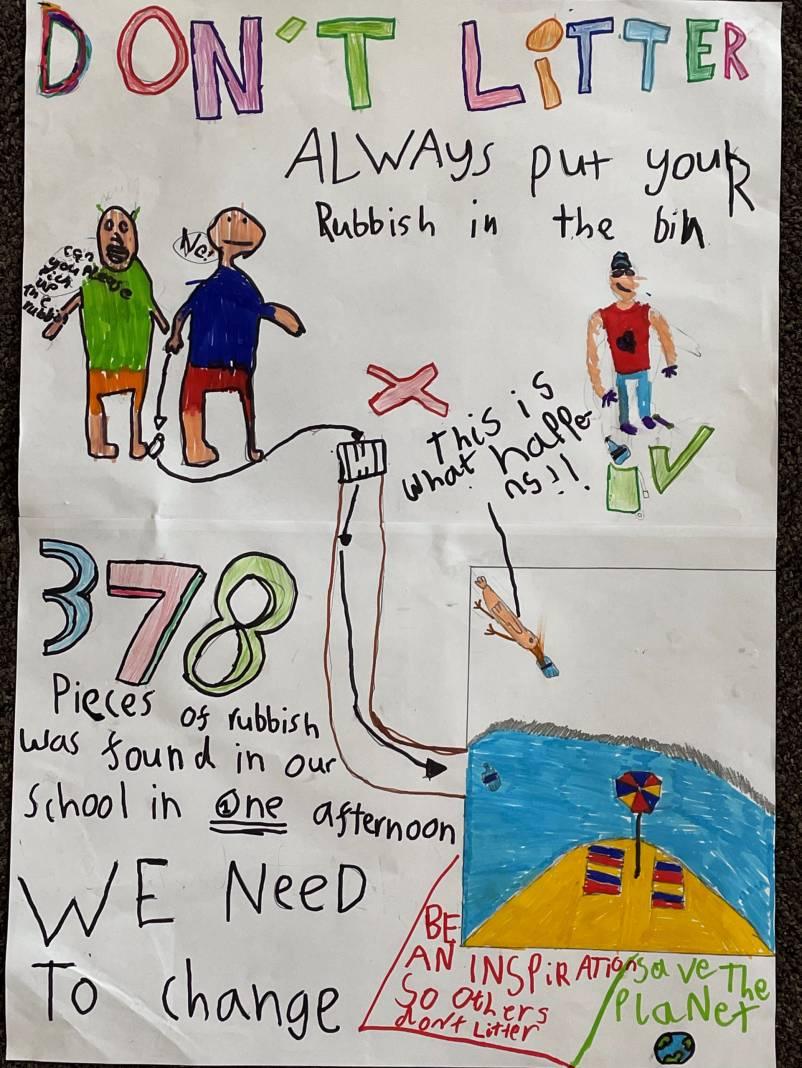 DON'T LiTTER
ALWAYs put youR
Rubbish in the bin
can
you please
pick
up
the
rubbish
No!
This is
what happe
ns!!
378
Pieces of rubbish
was found in our
school in One afternoon
WE NeeD
To change
BE
AN INSPiRATion
So Others
don't Litter
save The
PlaNet